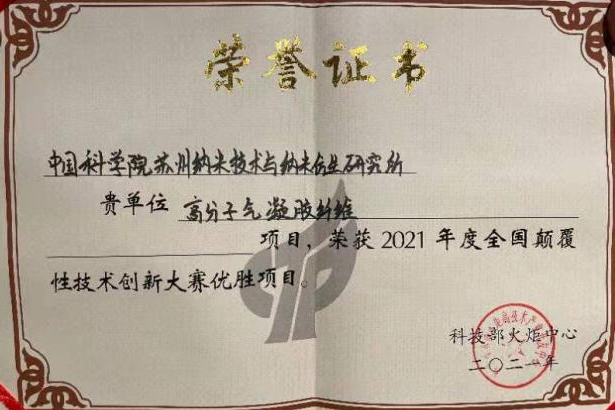 荣誉证书
中国科学院苏州纳米技术与纳米仿生研究所
贵单位 高分子气凝胶纤维
项目，荣获2021年度全国颠覆
性技术创新大赛优胜项目。
科技部火炬中心
二〇二一年